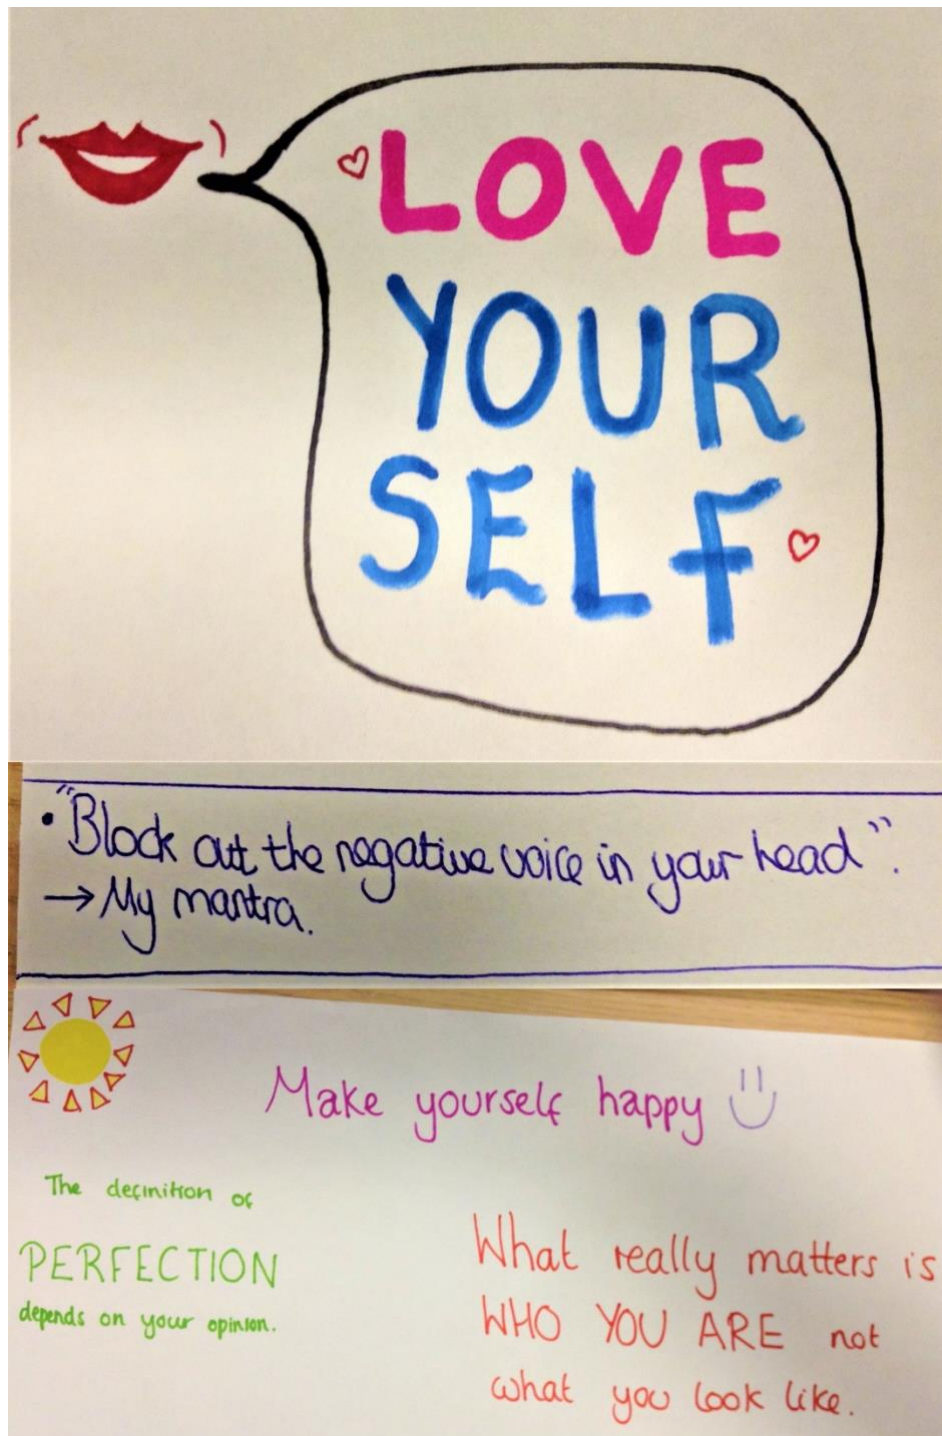 LOVE
YOUR
SELF
• "Block out the negative voice in your head".
→ My mantra.
Make yourself happy
The definition of
PERFECTION
depends on your opinion.
What really matters is
WHO YOU ARE not
what you look like.